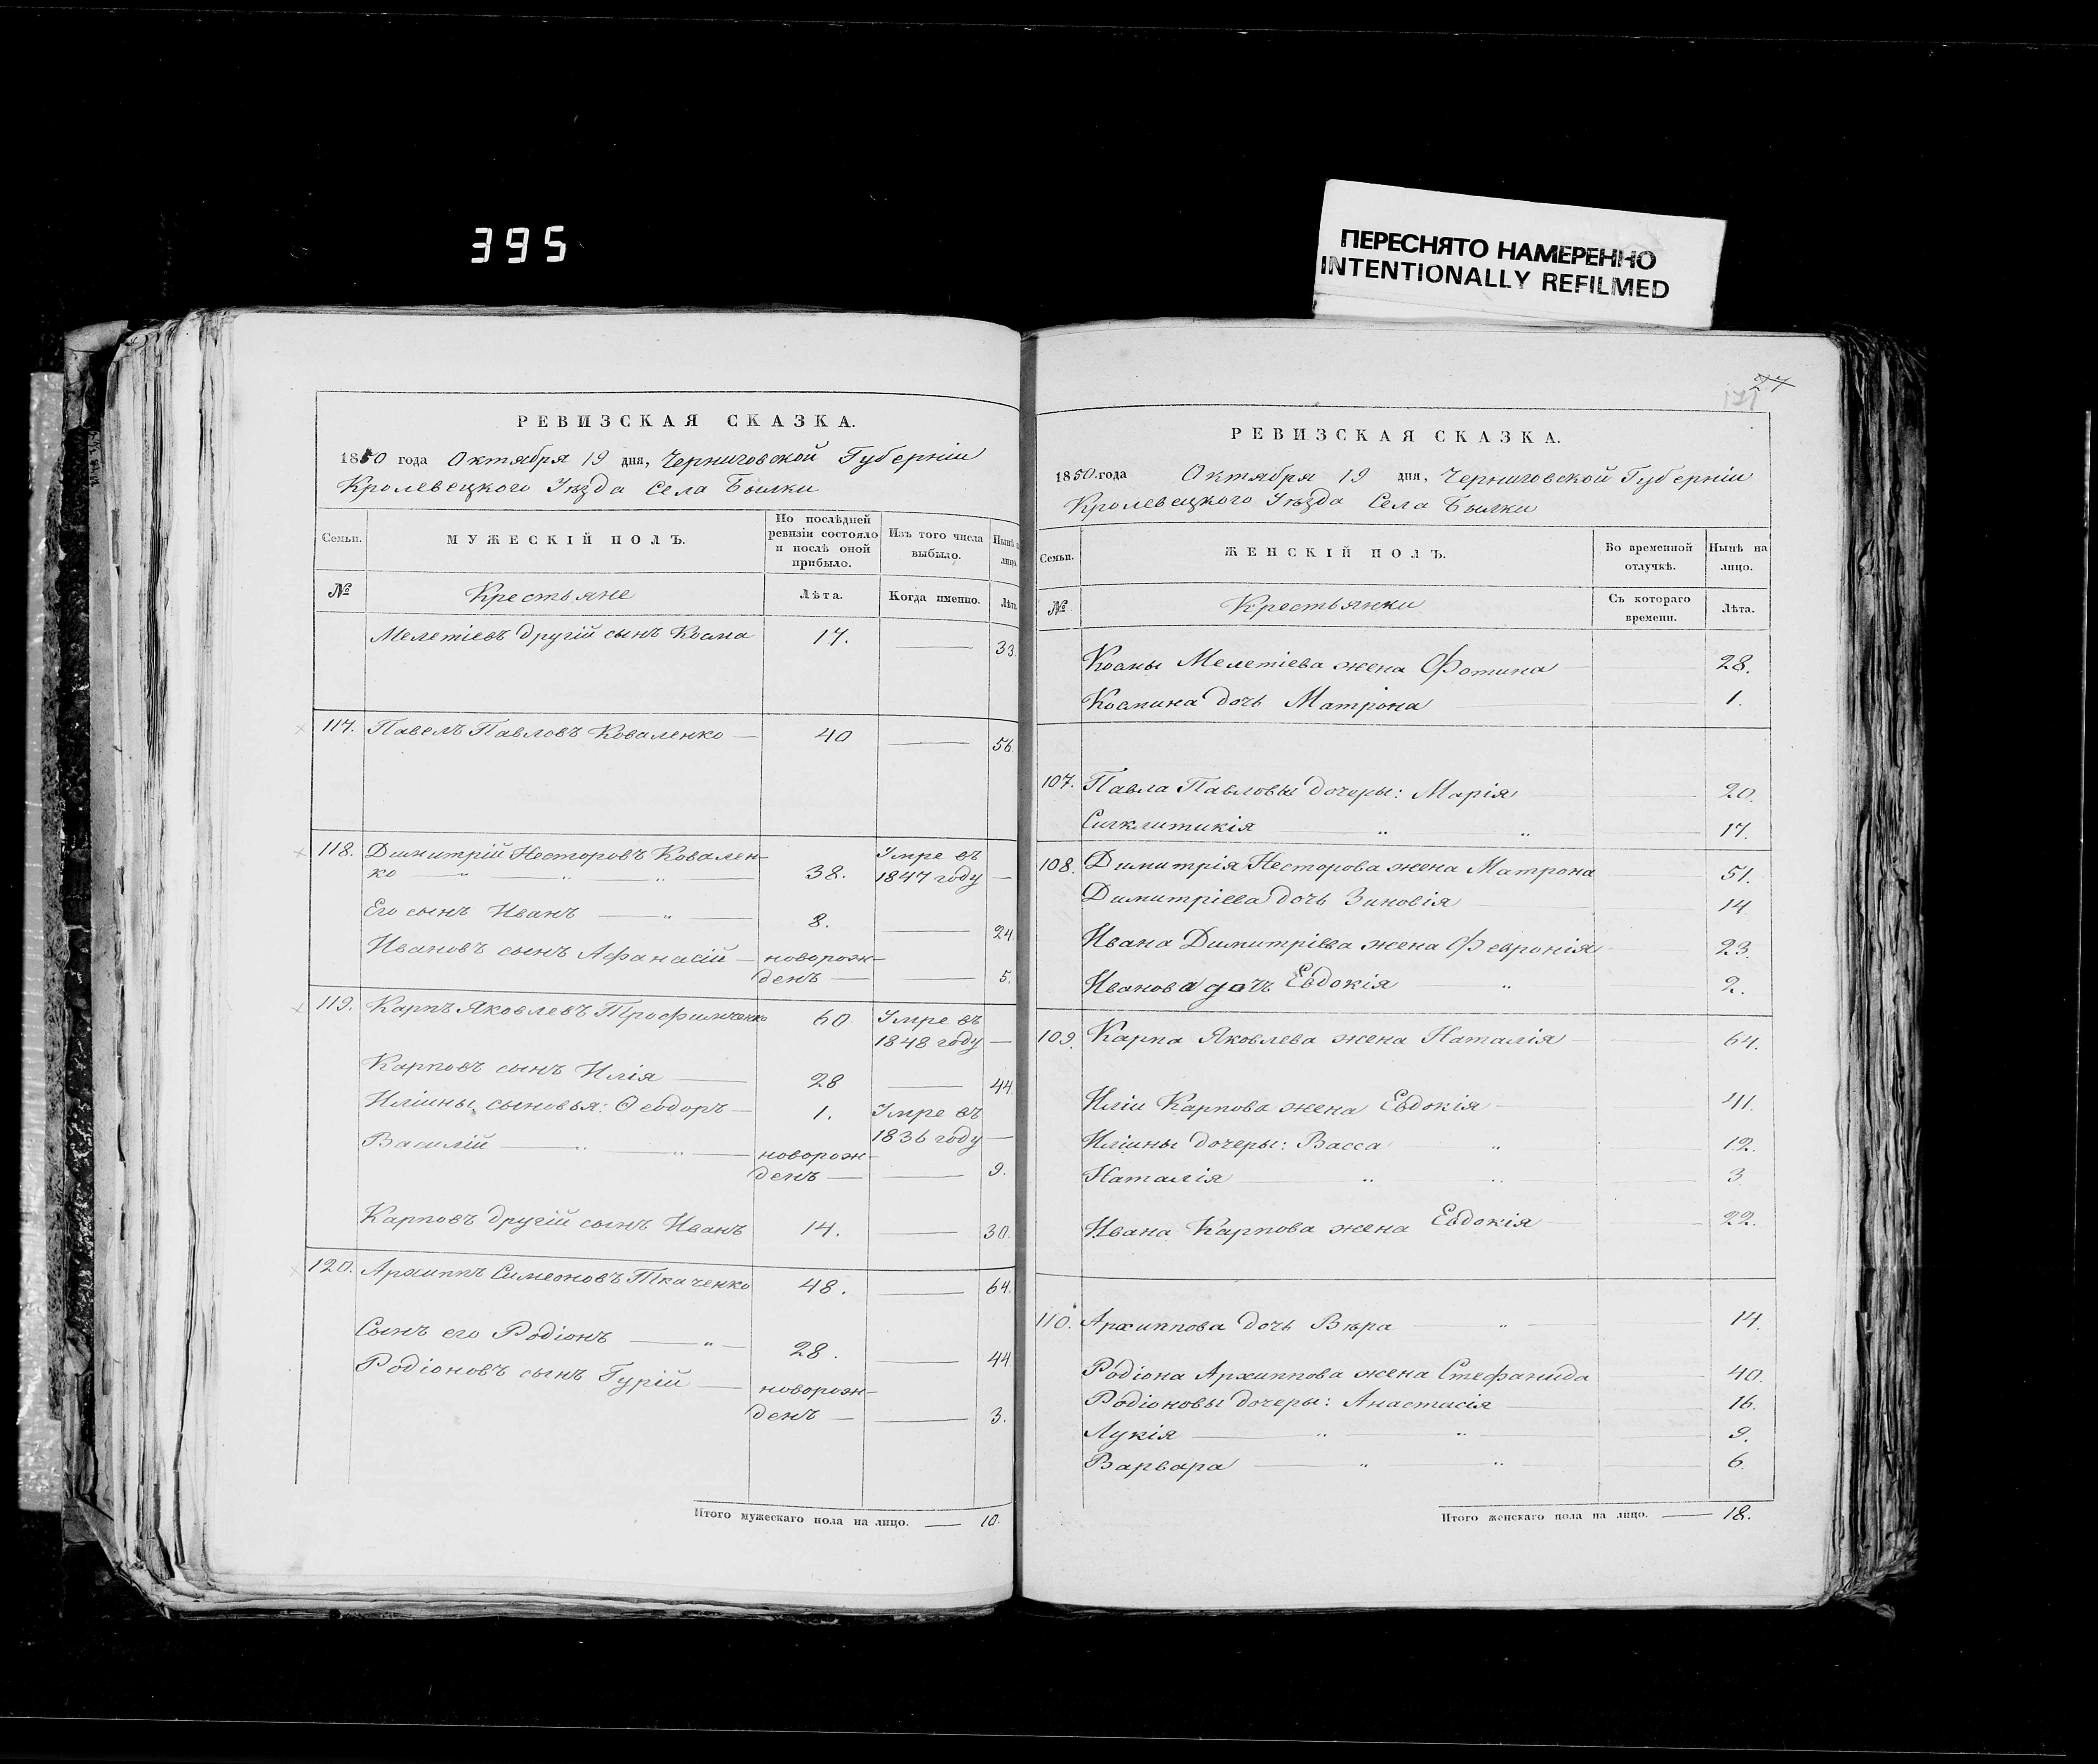 395
ПЕРЕСНЯТО НАМЕРЕННО
INTENTIONALLY REFILMED
РЕВИЗСКАЯ СКАЗКА.
1850 года Октября 19 дня, Черниговской Губерніи
Кролевецкого Уѣзда Села Былки
Семьи. МУЖЕСКІЙ ПОЛЪ. По послѣдней ревизіи состояло и послѣ оной прибыло. Изъ того числа выбыло. Нынѣ на лицо.
№ Крестьяне Лѣта. Когда именно. Лѣта.
Мелетіевъ другій сынъ Косма 17. — 33.
117. Павелъ Павловъ Коваленко — 40 — 56.
118. Димитрій Несторовъ Ковален-
ко 38. Умре въ 1847 году —
Его сынъ Иванъ — 8. — 24.
Ивановъ сынъ Афанасій — новорож-
денъ — 5.
119. Карпъ Яковлевъ Трофимченко 60 Умре въ
1848 году —
Карповъ сынъ Илія — 28 — 44.
Иліины сыновья: Ѳеодоръ — 1. Умре въ
1836 году —
Василій — новорож-
денъ — 9.
Карповъ другій сынъ Иванъ 14. — 30.
120. Архиппъ Симеоновъ Ткаченко 48. — 64.
Сынъ его Родіонъ — 28. — 44.
Родіоновъ сынъ Гурій — новорож-
денъ — 3.
Итого мужескаго пола на лицо. — 10.
27
171
РЕВИЗСКАЯ СКАЗКА.
1850. года Октября 19 дня, Черниговской Губерніи
Кролевецкого Уѣзда Села Былки
Семьи. ЖЕНСКІЙ ПОЛЪ. Во временной отлучкѣ. Нынѣ на лицо.
№ Крестьянки Съ котораго времени. Лѣта.
Космы Мелетіева жена Фотина — 28.
Космина дочь Матрона — 1.
107. Павла Павловы дочеры: Марія — 20.
Сигклитикія — 17.
108. Димитрія Несторова жена Матрона — 51.
Димитріева дочь Зиновія — 14.
Ивана Димитріева жена Февронія — 23.
Иванова дочь Евдокія — 2.
109. Карпа Яковлева жена Наталія — 64.
Иліи Карпова жена Евдокія — 41.
Иліины дочеры: Васса — 12.
Наталія — 3.
Ивана Карпова жена Евдокія — 22.
110. Архиппова дочь Вѣра — 14.
Родіона Архиппова жена Стефанида — 40.
Родіоновы дочеры: Анастасія — 16.
Лукія — 9.
Варвара — 6.
Итого женскаго пола на лицо. — 18.